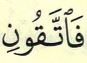 فَٱتَّقُونِ